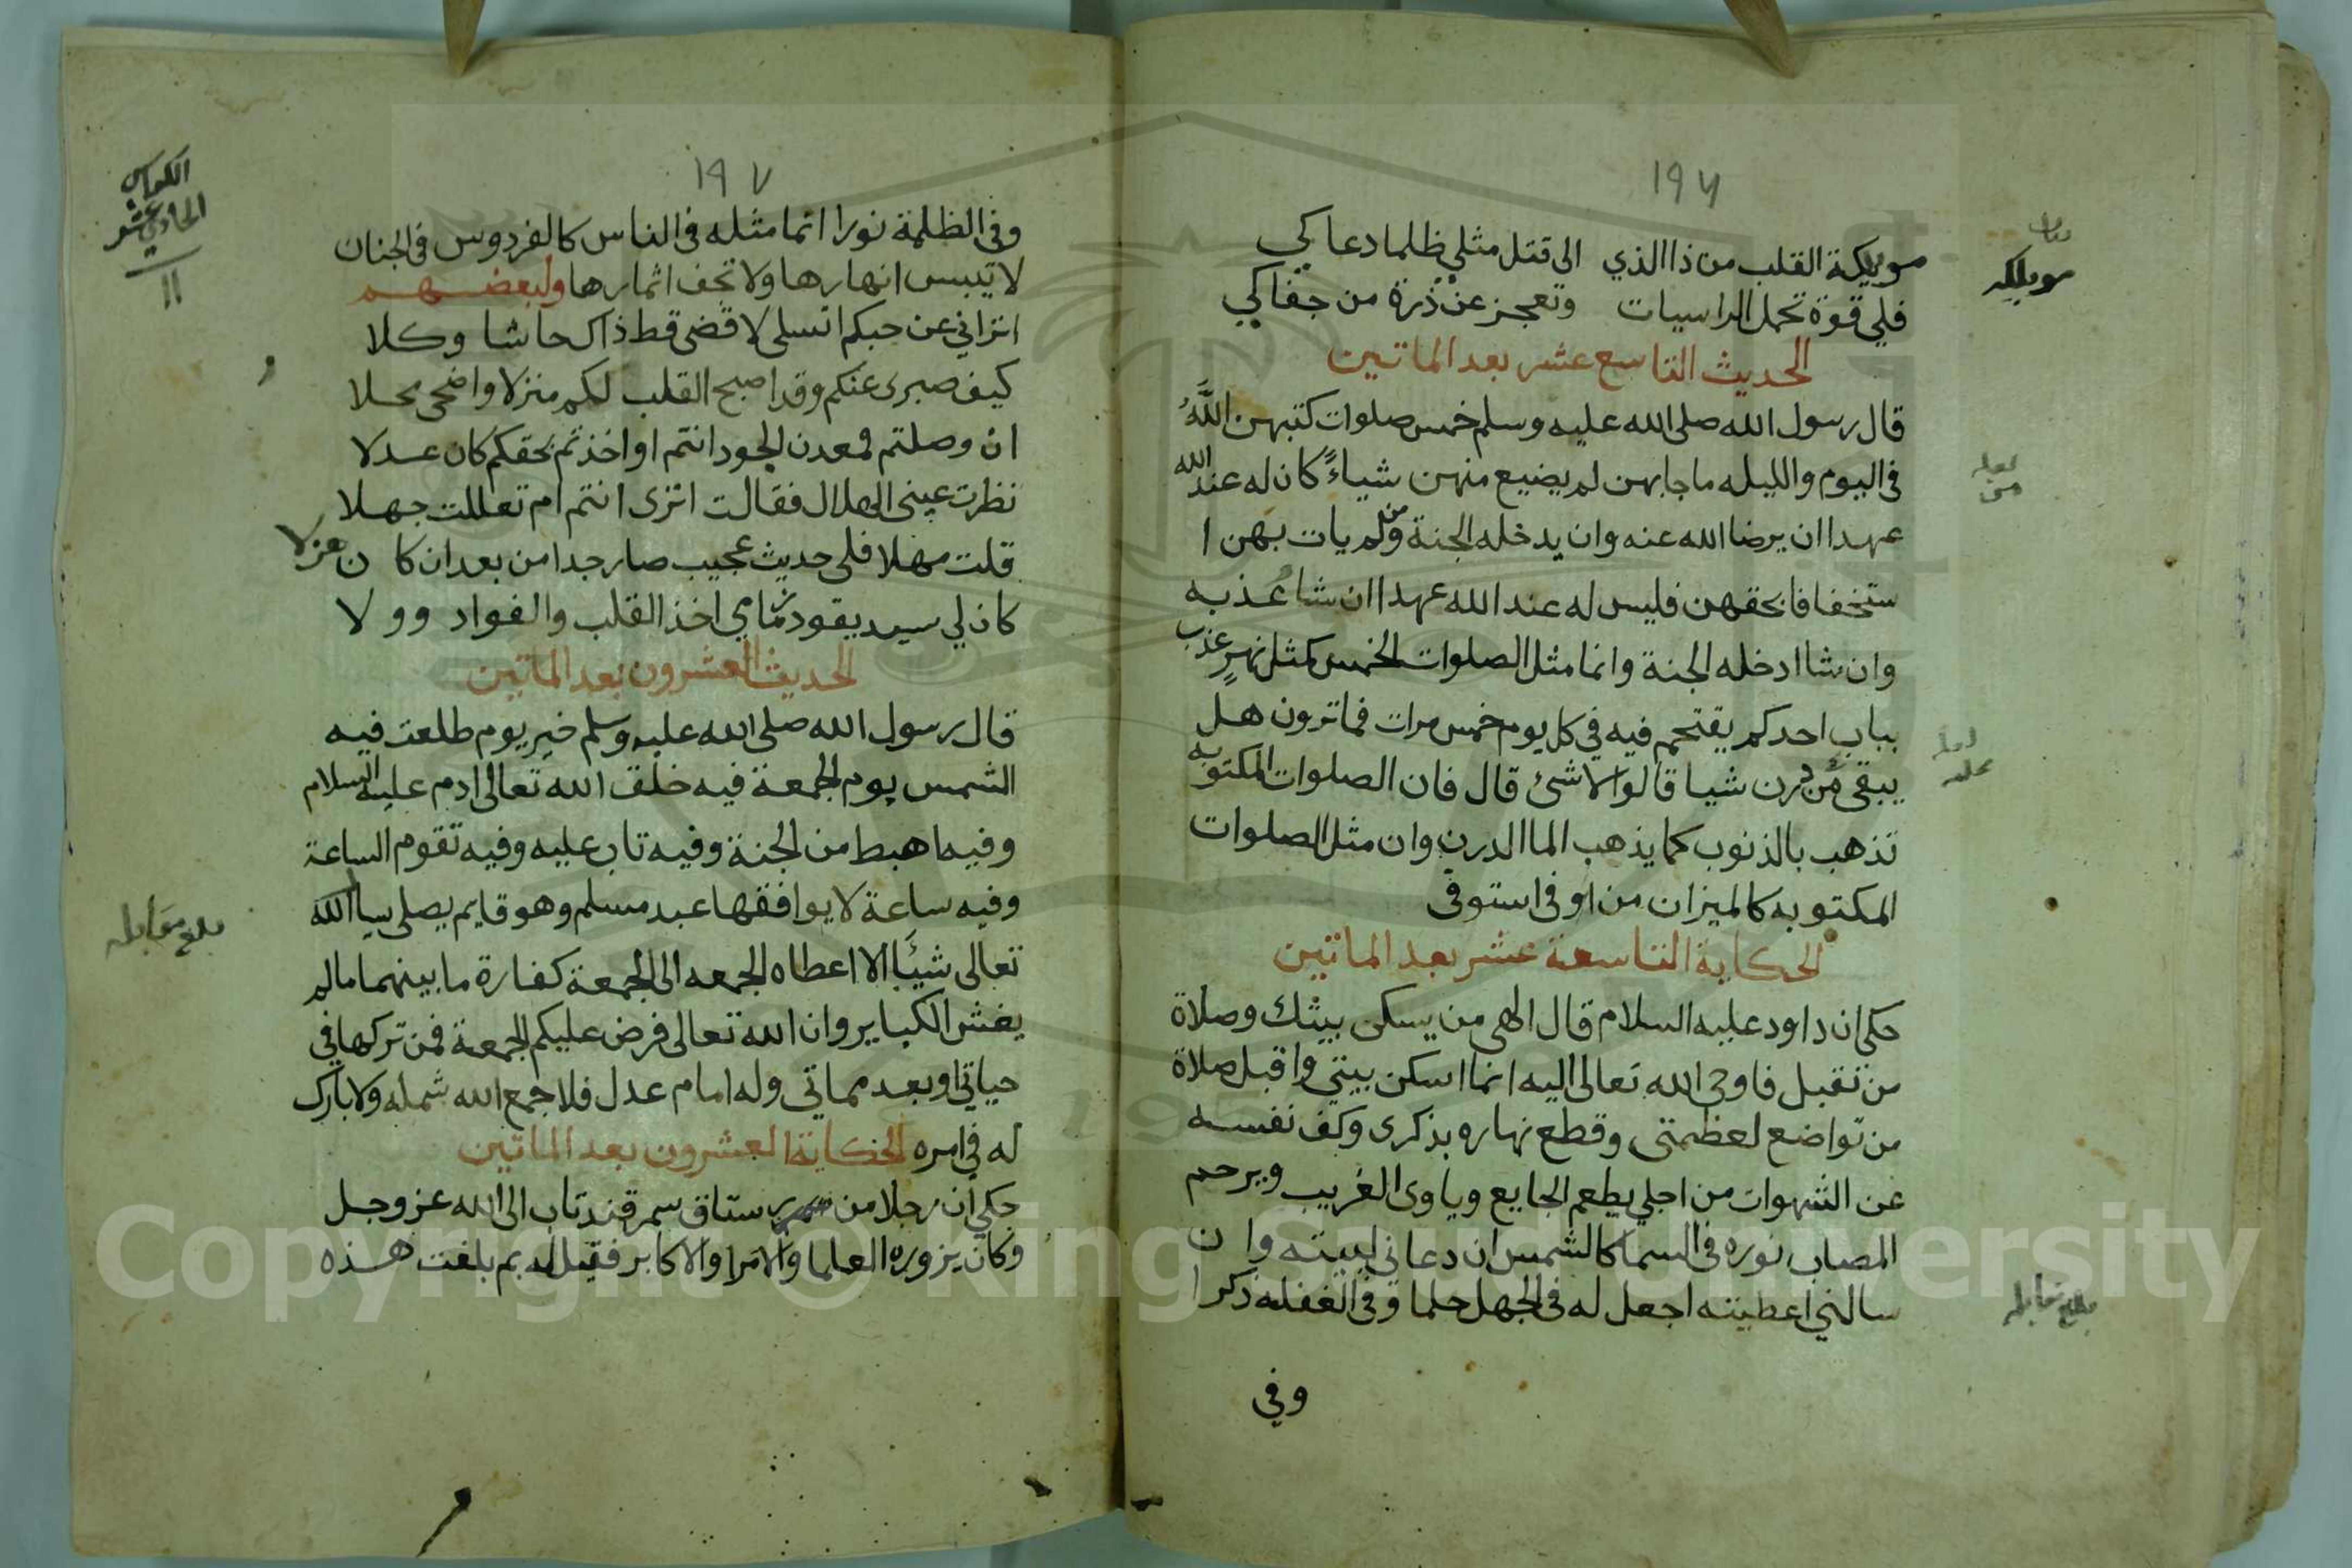 ١٩٦
مويلكة القلب من ذا الذي الى قتل مثلي ظلما دعاكي
مويلكه
فلي قوة تحمل الراسيات وتعجز عن ذرة من جفاكي
الحديث التاسع عشر بعد الماتين
قال رسول الله صلى الله عليه وسلم خمس صلوات كتبهن اللَّهُ
في اليوم والليله ما جابهن لم يضيع منهن شياءً كان له عند الله
عهدا ان يرضا الله عنه وان يدخله الجنة ومن لم يات بهن ا
ستخفافا بحقهن فليس له عند الله عهدا ان شا عذبه
وان شا ادخله الجنة وانما مثل الصلوات الخمس كمثل نهرٍ عذب
بباب احدكم يقتحم فيه في كل يوم خمس مرات فما ترون هل
يبقى من درن شيا قالوا لا شئ قال فان الصلوات المكتوبه
تذهب بالذنوب كما يذهب الما الدرن وان مثل الصلوات
المكتوبه كالميزان من اوفى استوفى
الحكاية التاسعة عشر بعد الماتين
حكى ان داود عليه السلام قال الهى من يسكن بيتك وصلاة
من تقبل فاوحى الله تعالى اليه انما اسكن بيتي واقبل صلاة
من تواضع لعظمتى وقطع نهاره بذكرى وكف نفسه
عن الشهوات من اجلي يطعم الجايع وياوى الغريب ويرحم
المصاب نوره في السما كالشمس ان دعانى لبيته وان
سالني اعطيته اجعل له في الجهل حلما وفي الغفله ذكرا
بلغ مقابله
وفي
١٩٧
الكراس
الحادي عشر
١١
وفي الظلمة نورا انما مثله في الناس كالفردوس في الجنان
لا تيبس انهارها ولا تجف اثمارها ولبعضهم
اتراني عن حبكم اتسلى لا قضى قط ذاك حاشا وكلا
كيف صبرى عنكم وقد اصبح القلب لكم منزلا واضحى محلا
ان وصلتم فمعدن الجود انتم او اخذتم بحقكم كان عدلا
نظرت عينى الهلال فقالت اترى انتم ام تعاللت جهلا
قلت مهلا فلى حديث عجيب صار جدا من بعد ان كان هزلا
كان لي سيد يقود زمامي اخذ القلب والفواد وولا
الحديث العشرون بعد الماتين
قال رسول الله صلى الله عليه وسلم خير يوم طلعت فيه
الشمس يوم الجمعة فيه خلق الله تعالى ادم عليه السلام
وفيه اهبط من الجنة وفيه تاب عليه وفيه تقوم الساعة
وفيه ساعة لا يوافقها عبد مسلم وهو قايم يصلى يسا الله
بلغ مقابله
تعالى شيئا الا اعطاه الجمعه الى الجمعة كفارة ما بينهما ما لم
يغش الكباير وان الله تعالى فرض عليكم الجمعة فمن تركها في
حياتي او بعد مماتي وله امام عدل فلا جمع الله شمله ولا بارك
له في امره الحكاية العشرون بعد الماتين
حكي أن رجلا من رستاق سمرقند تاب الى الله عز وجل
وكان يزوره العلما والامرا والاكابر فقيل له بم بلغت هذه
Copyright © King Saud University